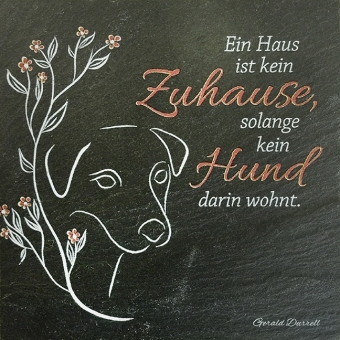 Ein Haus
ist kein
Zuhause,
solange
kein
Hund
darin wohnt.
Gerald Durrell